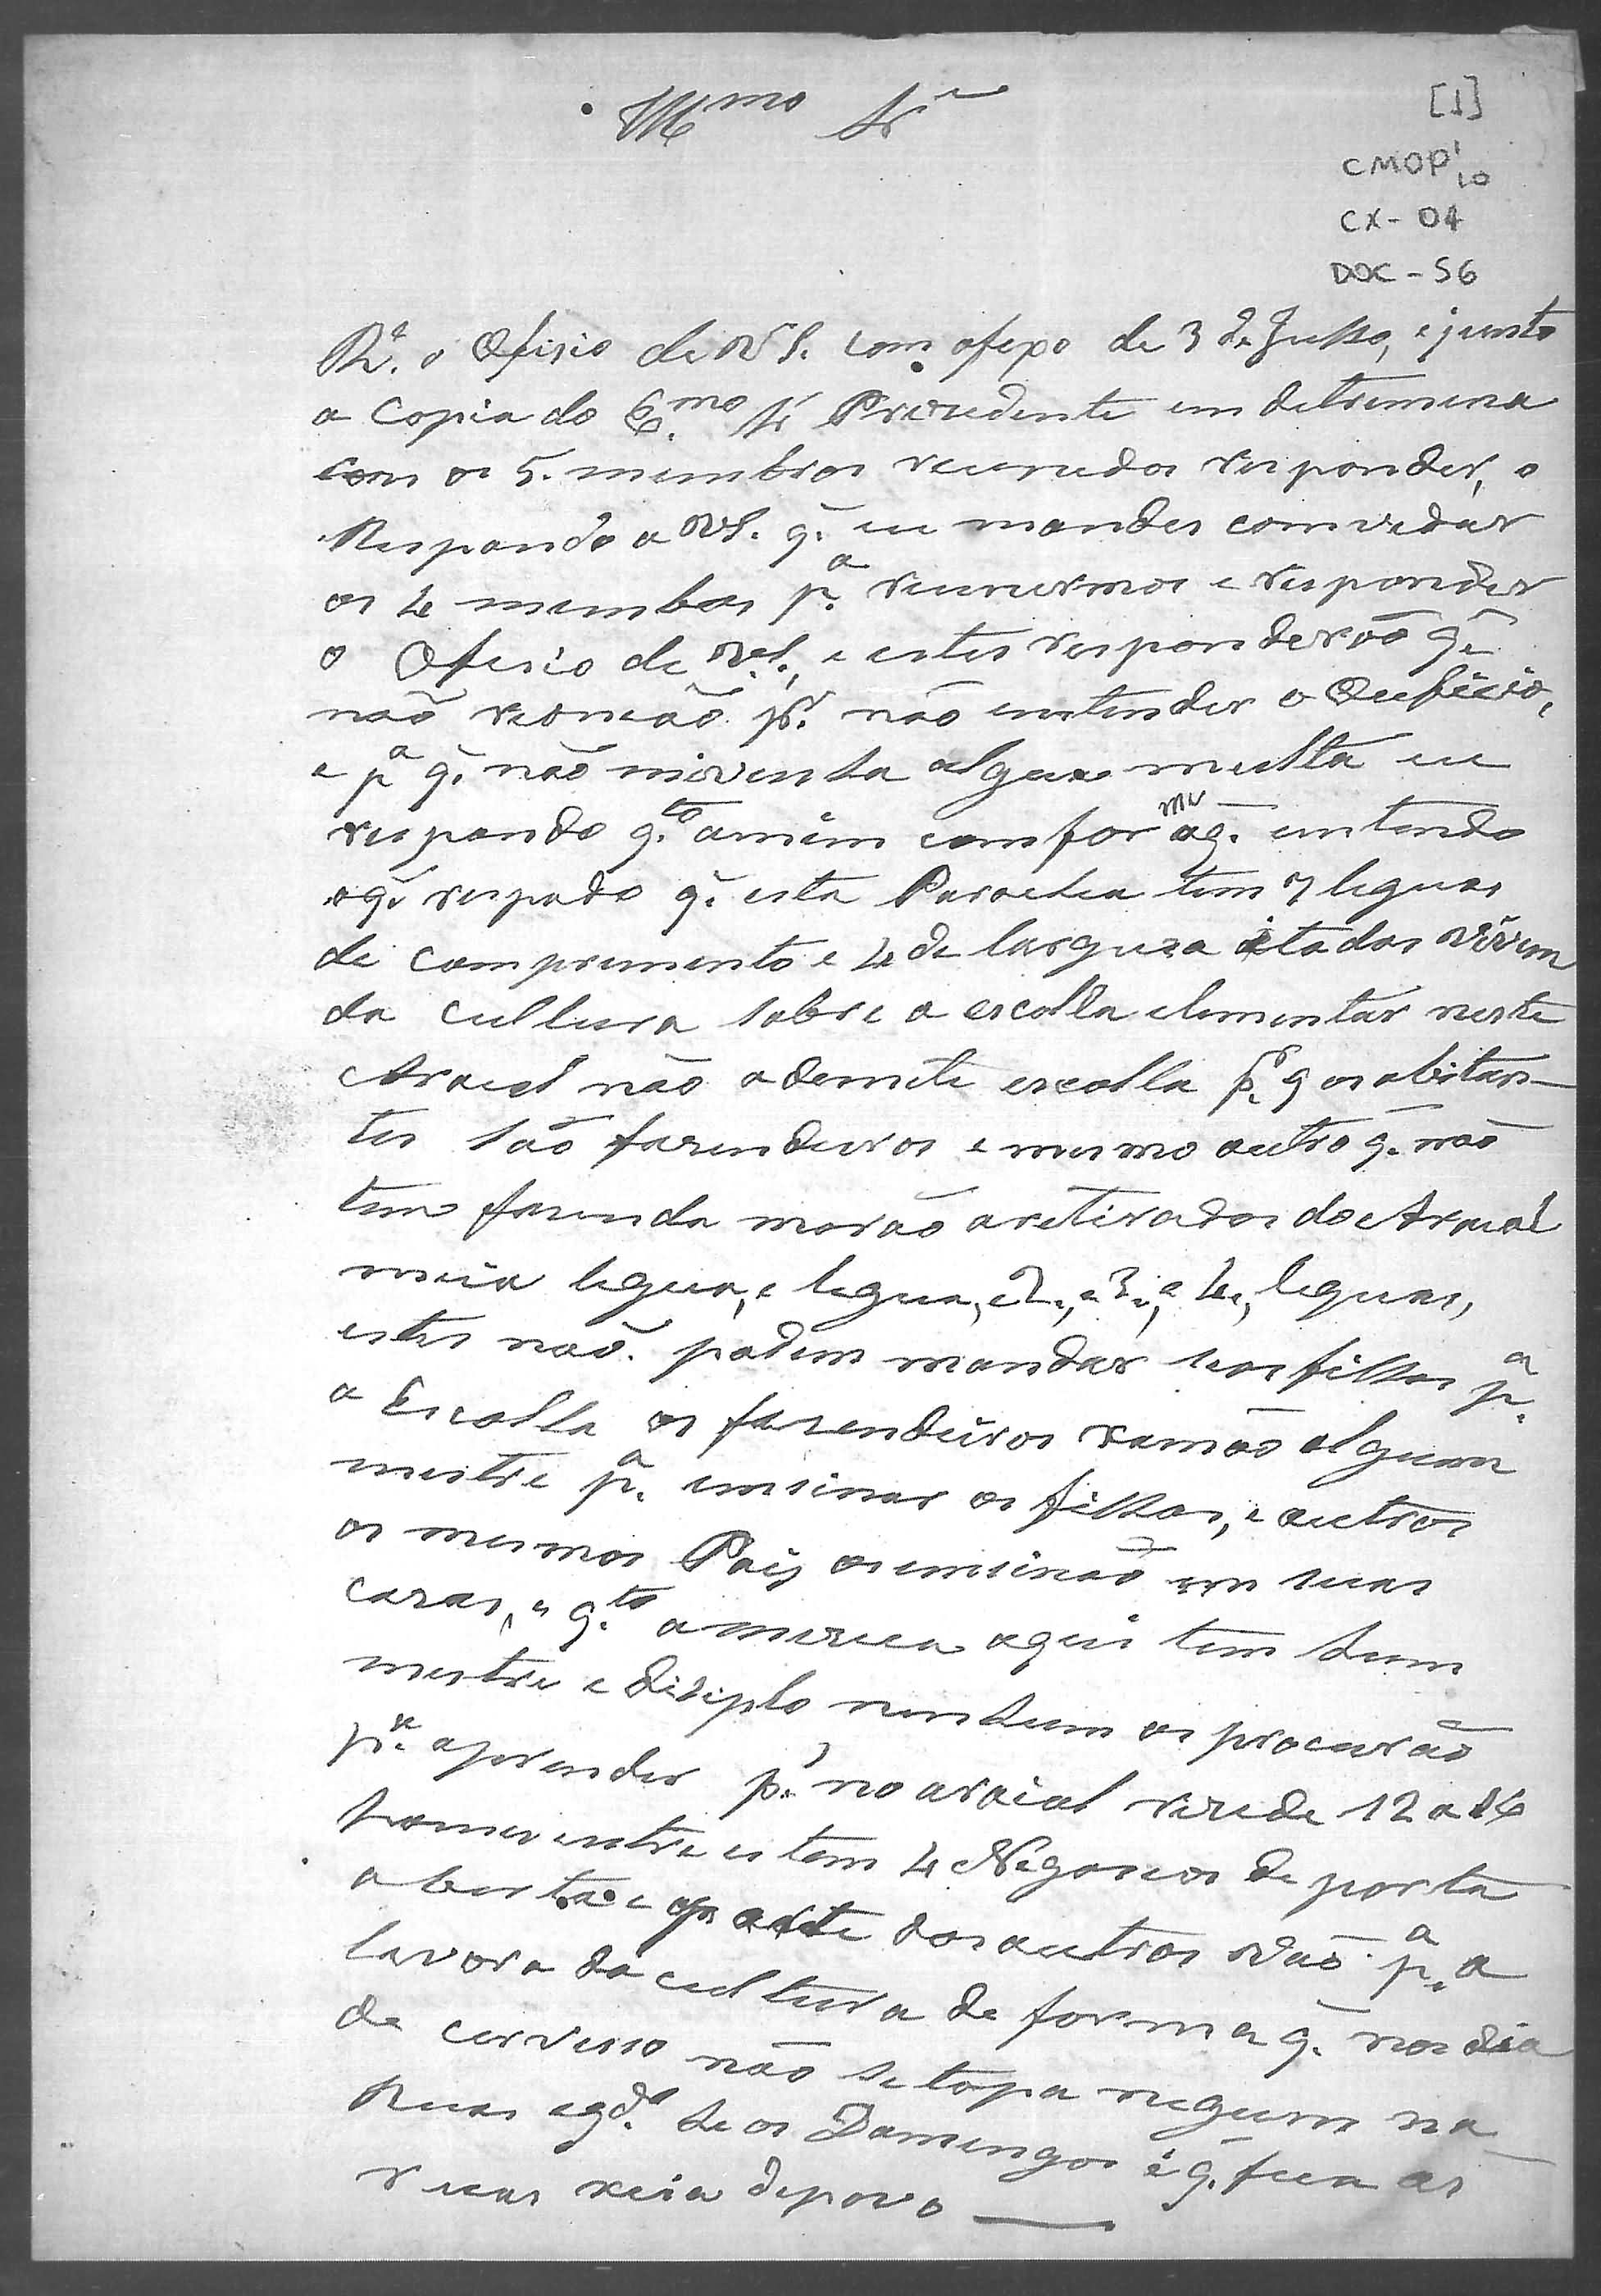 Illmo Sr
[1]
CMOP 10
CX - 04
DOC - 56
R.e o Ofisio de V S. com ofexo de 3 de Julho, e junto
a Copia do E.mo Sr Prezedente em detremina
com os 5. membros reunidos responder, o
Respondo a VS. q. eu mandei comvedar
os 4 membos p.a reunirmos e responder
o Ofisio de VS., e estes responderão q.
não reonião p.r não entender o Oufiçio,
e p.a q. não nioven ha algua multa eu
respondo q.to amim comforme oq. entendo
oq. respodo q. esta Parochia tem 7 leguas
de comprimento e 4 de largura e todos vivem
da cultura sobre a escolla elementar neste
Araial não ademite escolla p.r q os abitan-
tes são fazendeiros e mesmo outro q. não
tem fazenda morão aretirados do Araial
meia legua, e legua, e 2., e 3., e 4., leguas,
estes não podem mandar seos filhos p.a
a Escolla os fazendeiros ramão algum
mestre p.a emsinar os filhos, e outros
os mesmos Pais os emsinão em suas
cazas, e q.to a mezea aqui tem hum
mestre e disiplo nenhum os procurão
p.a aprender p.r no araial rezide 12 a 16
homes entre es tem 4 Negoscios de porta
aberta e parte dos outros vão p.a a
lavora da cultura de forma q. nos dia
de cerviso não se topa negum na
Ruas eqd.o he os Domingos é q. fica as
ruas xeia depovo